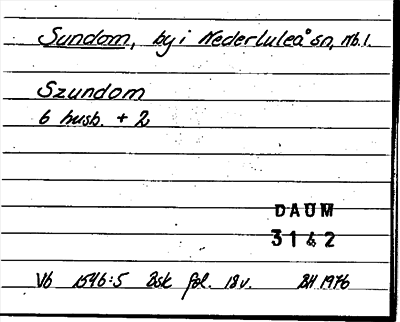 Sundom, by i Nederluleå sn, Nb.l.
Szundom
6 husb. + 2
DAUM
3142
Vb 1546:5 Bsk fol. 18v. BH 1976